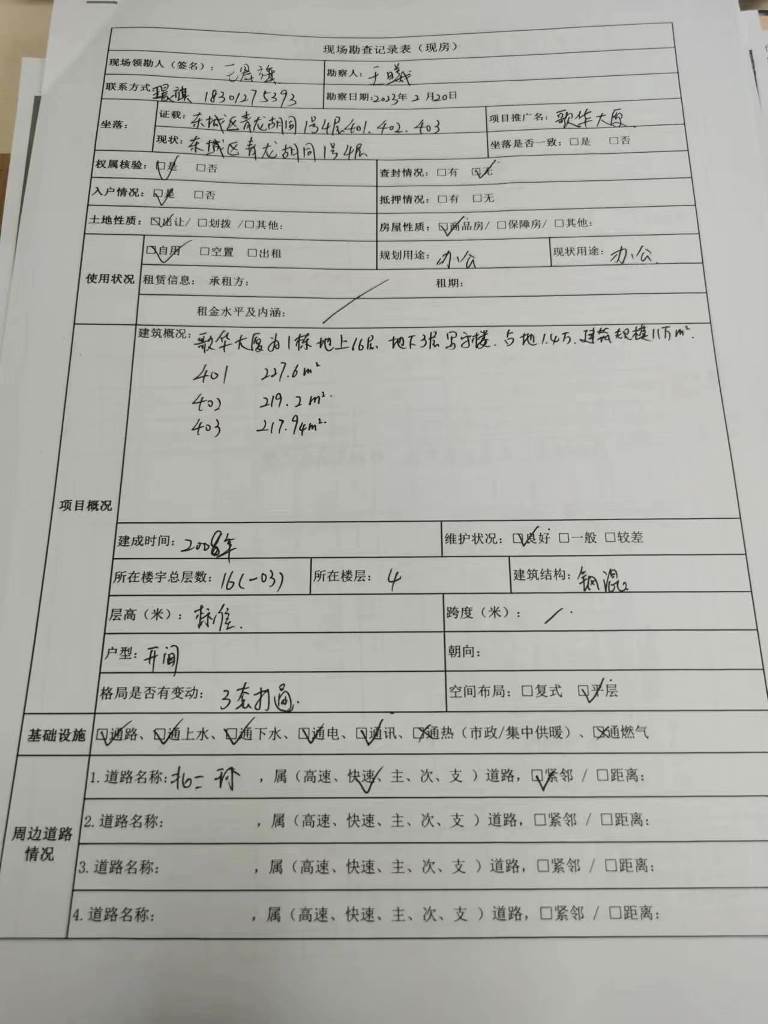 现场勘查记录表（现房）
现场领勘人（签名）： 勘察人：王曦
联系方式 18301275393 勘察日期：2023年2月20日
坐落： 证载：东城区青龙胡同1号4层401.402.403 项目推广名：歌华大厦
现状：东城区青龙胡同1号4层 坐落是否一致：□是 □否
权属核验：☑是 □否 查封情况：□有 ☑无
入户情况：☑是 □否 抵押情况：□有 □无
土地性质：☑出让/ □划拨 /□其他： 房屋性质：☑商品房/ □保障房/ □其他：
使用状况 ☑自用 □空置 □出租 规划用途：办公 现状用途：办公
租赁信息： 承租方： 租期：
租金水平及内涵： /
项目概况 建筑概况：歌华大厦为1栋地上16层.地下3层写字楼.占地1.4万.建筑规模11万m².
401 227.6m²
402 219.2m².
403 217.94m².
建成时间：2008年 维护状况：☑良好 □一般 □较差
所在楼宇总层数：16(-03) 所在楼层：4 建筑结构：钢混
层高（米）：标准. 跨度（米）：/
户型：开间 朝向：
格局是否有变动：3套打通. 空间布局：□复式 ☑平层
基础设施 ☑通路、☑通上水、☑通下水、☑通电、☑通讯、☒通热（市政/集中供暖）、☒通燃气
周边道路情况 1.道路名称：北二环 ，属（高速、快速✓、主、次、支 ）道路，☑紧邻 / □距离：
2.道路名称： ，属（高速、快速、主、次、支 ）道路，□紧邻 / □距离：
3.道路名称： ，属（高速、快速、主、次、支 ）道路，□紧邻 / □距离：
4.道路名称： ，属（高速、快速、主、次、支 ）道路，□紧邻 / □距离：